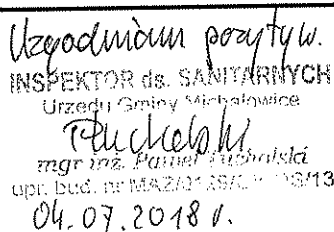 Uzgadniam pozytyw.
INSPEKTOR ds. SANITARNYCH
Urzędu Gminy Michałowice
mgr inż. Paweł Puchalski
upr. bud. nr
04.07.2018 r.